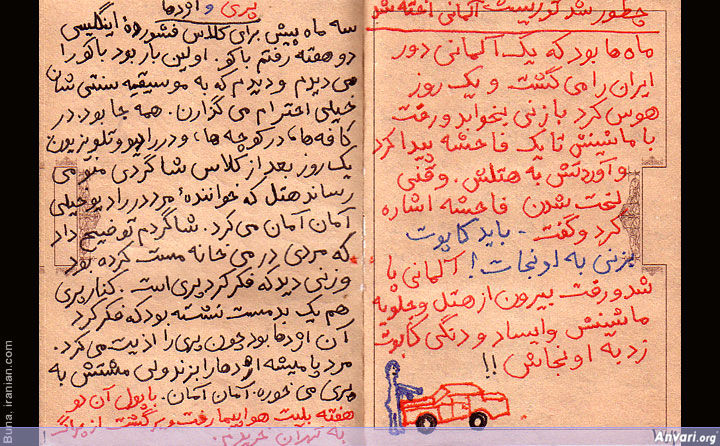 چطور شد توریست آلمانی اخته شد
ماه‌ها بود که یک آلمانی دور
ایران را می گشت و یک روز
هوس کرد با زنی بخوابد و رفت
با ماشینش تا یک فاحشه پیدا کرد
و آوردتش به هتلش. وقتی
لخت شدن فاحشه اشاره
کرد و گفت - باید کاپوت
بزنی به اونجات! آلمانی پا
شد و رفت بیرون از هتل و جلویه
ماشینش وایساد و دنگی کاپوت
زد به اونجاش!!
پری و اژدها
سه ماه پیش برای کلاس فشورده اینگلیسی
دو هفته رفتم باکو. اولین بار بود باکو را
می دیدم و دیدم که به موسیقیه سنتی شان
خیلی احترام می گذارن. همه جا بود. در
کافه‌ها، در کوچه‌ها، و در رادیو و تلویزیون
یک روز بعد از کلاس شاگردی منو می
رساند هتل که خوانندهٔ مرد در رادیو خیلی
آمان آمان می کرد. شاگردم توضیح داد
که مردی در می خانه مست کرده بود
و زنی دید که فکر کرد پری است. کنار پری
هم یک بدمست نشسته بود که فکر کرد
آن اژدها بود چون پری را اذیت می کرد.
مرد پا میشه اژدها را بزند ولی مشتش به
پری می خوره. آمان آمان. با پول آن دو
هفته بلیت هواپیما رفت و برگشت از
به تهران خریدم.
Buna, iranian.com
Anvari.org